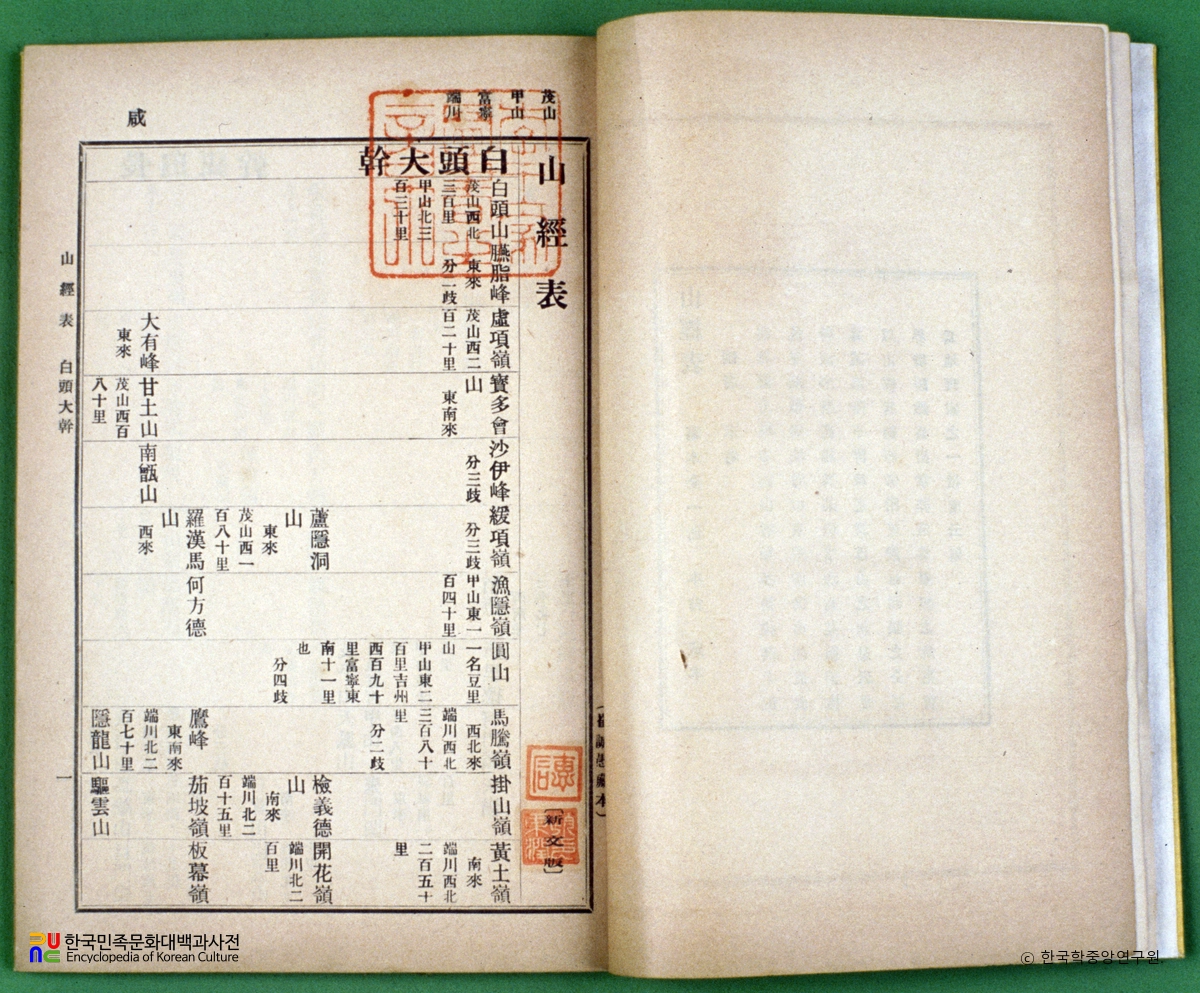 茂山
甲山
富寧
端川
咸
山經表
白頭大幹
白頭山
茂山西北
三百里
甲山北三
百三十里
臙脂峰
東來
分二歧
虛項嶺
茂山西二
百二十里
寶多會
山
東南來
沙伊峰
分三歧
緩項嶺
分三歧
漁隱嶺
甲山東一
百四十里
圓山
一名豆里
山
甲山東二
百里吉州
西百九十
里富寧東
南十一里
也
分四歧
馬騰嶺
西北來
端川西北
三百八十
里
分二歧
掛山嶺
黃土嶺
南來
端川西北
二百五十
里
蘆隱洞
山
東來
茂山西一
百八十里
檢義德
山
南來
端川北二
百十五里
開花嶺
端川北二
百里
羅漢馬
山
西來
何方德
鷹峰
東南來
端川北二
百七十里
茄坡嶺
板幕嶺
大有峰
東來
甘土山
茂山西百
八十里
南甑山
隱龍山
驅雲山
〔新文版〕
山經表 白頭大幹
一
한국민족문화대백과사전
Encyclopedia of Korean Culture
© 한국학중앙연구원